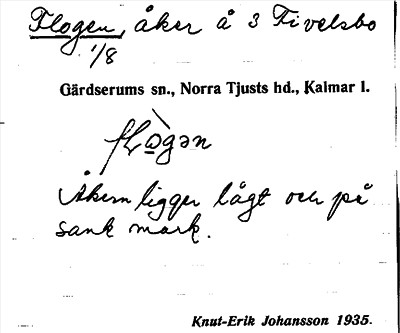 Flogen, åker å 3 Fivelsbo
1/8
Gärdserums sn., Norra Tjusts hd., Kalmar l.
Åkern ligger lågt och på
sank mark.
Knut-Erik Johansson 1935.